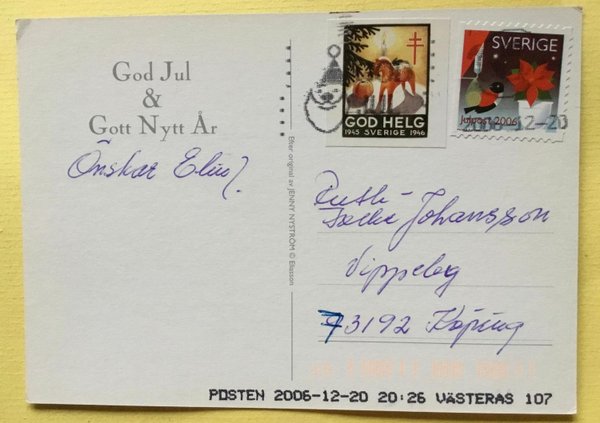 God Jul
&
Gott Nytt År
Önskar
Efter original av JENNY NYSTRÖM © Eliasson
GOD HELG
1945 SVERIGE 1946
SVERIGE
Julpost 2006
2006-12-20
Ruth
Johansson
73192 Köping
POSTEN 2006-12-20 20:26 VÄSTERÅS 107